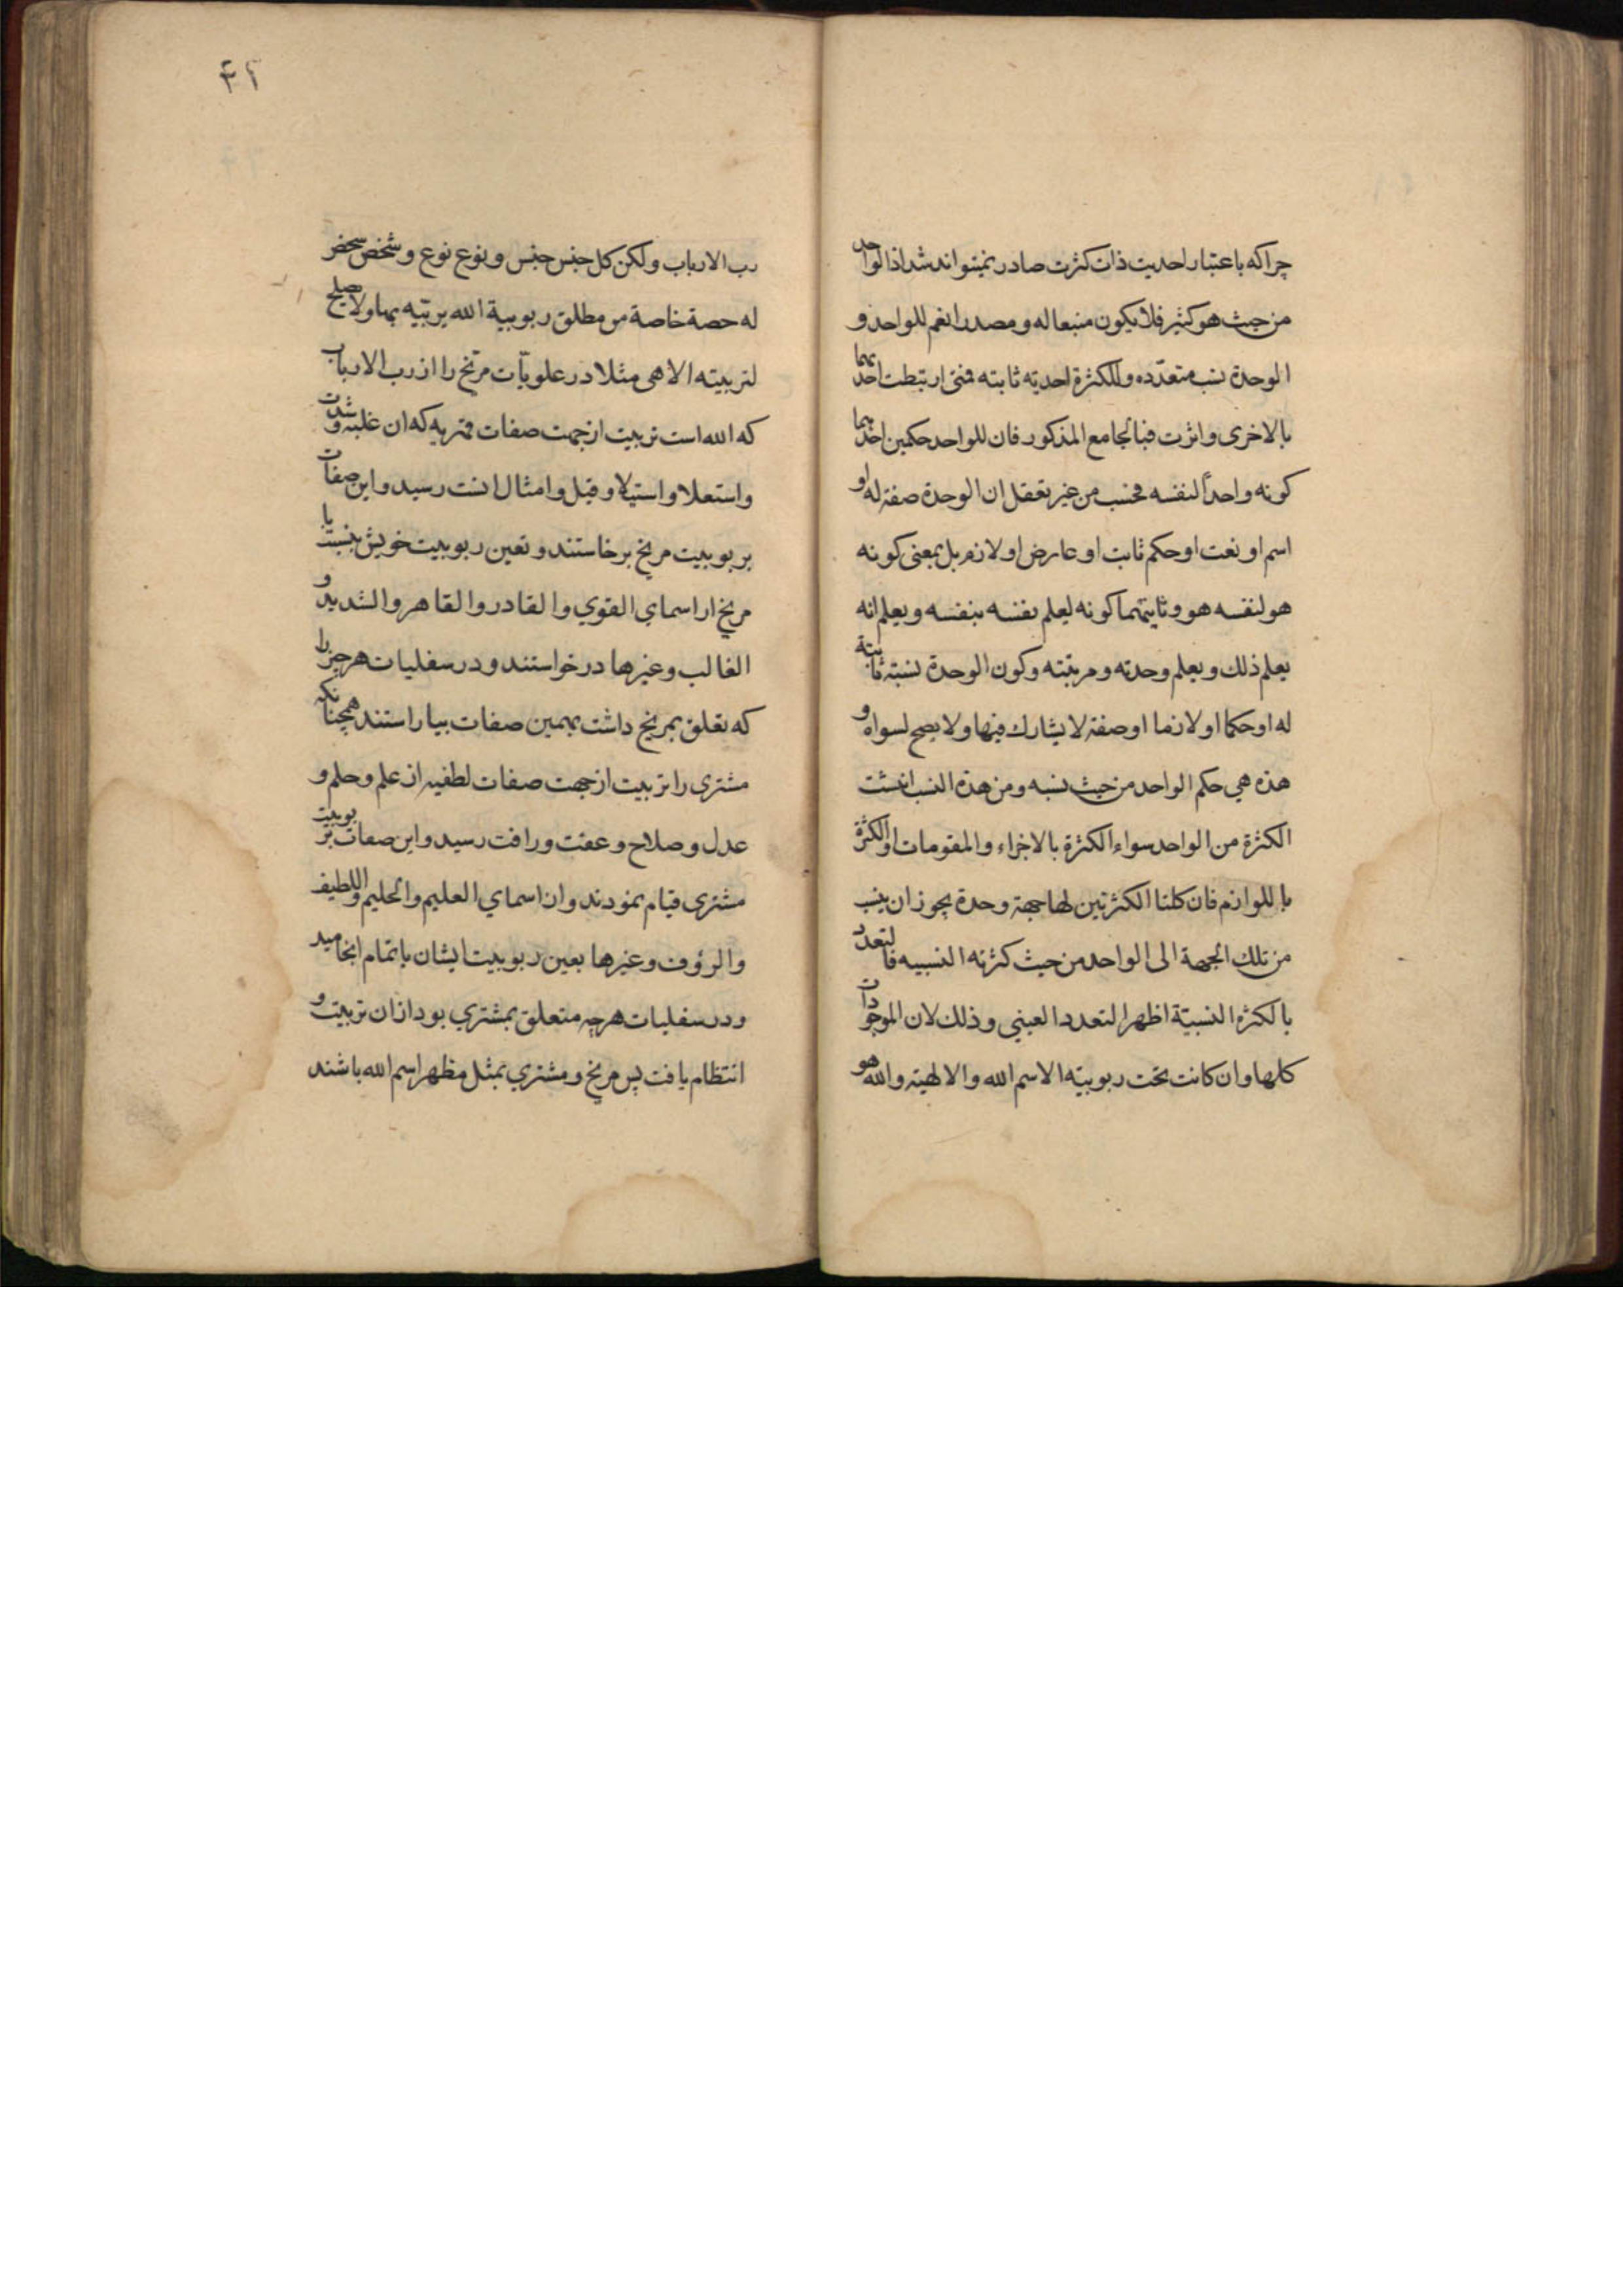 چرا که باعتبار احدیت ذات کثرت صادر نمیتواند شد اذ الواحد
من حیث هو کثیر فلا یکون منبعا له و مصدرا نعم للواحد و
الوحدة نسب متعدّده وللکثرة احدیته ثابته فمتی ارتبطت احدیهما
بالاخری و اثرت فبالجامع المذکور فان للواحد حکمین احدهما
کونه واحداً لنفسه فحسب من غیر تعقل ان الوحدة صفة له او
اسم او نعت او حکم ثابت او عارض او لازم بل بمعنی کونه
هو لنفسه هو و ثانیتهما کونه لیعلم نفسه بنفسه و یعلم انه
یعلم ذلك و یعلم وحدته و مرتبته وکون الوحدة نسبة ثابتة
له او حکما او لازما او صفة لا یشارك فیها ولا یصح لسواه و
هذه هی حکم الواحد من حیث نسبه و من هذة النسب انتشت
الکثرة من الواحد سواء الکثرة بالاجزاء والمقومات او الکثرة
باللوازم فان کلتا الکثرتین لها جهة وحدة یجوز ان ینسب
من تلك الجهة الی الواحد من حیث کثرته النسبیه فالتعدد
بالکثرة النسبیّة اظهر التعدد العینی وذلك لان الموجودات
کلها وان کانت تحت ربوبیته الاسم الله والالهیته والله هو
۴۲
رب الارباب ولکن کل جنس جنس و نوع نوع و شخص شخص
له حصة خاصة من مطلق ربوبیة الله یربیّه بها ولا یصلح
لتربیته الا هی مثلا در علویّات مرّیخ را از رب الارباب
که الله است تربیت از جهت صفات قهریه که ان غلبه و شدت
واستعلا و استیلا و قتل و امثال انست رسید و این صفات
بربوبیت مریخ برخاستند و تعین ربوبیت خویش بنسبت با
مریخ از اسمای القوی والقادر والقاهر والشدید و
الغالب و غیرها درخواستند و در سفلیات هرچیز را
که تعلق بمریخ داشت بهمین صفات بیاراستند همچنانکه
مشتری را تربیت از جهت صفات لطفیه از علم و حلم و
عدل و صلاح و عفت و رافت رسید و این صفات بربوبیت
مشتری قیام نمودند و از اسمای العلیم والحلیم واللطیف
والرؤف و غیرها بعین ربوبیت ایشان باتمام انجامید
و در سفلیات هرچه متعلق بمشتری بود ازان تربیت و
انتظام یافت پس مریخ و مشتری بمثل مظهر اسم الله باشند